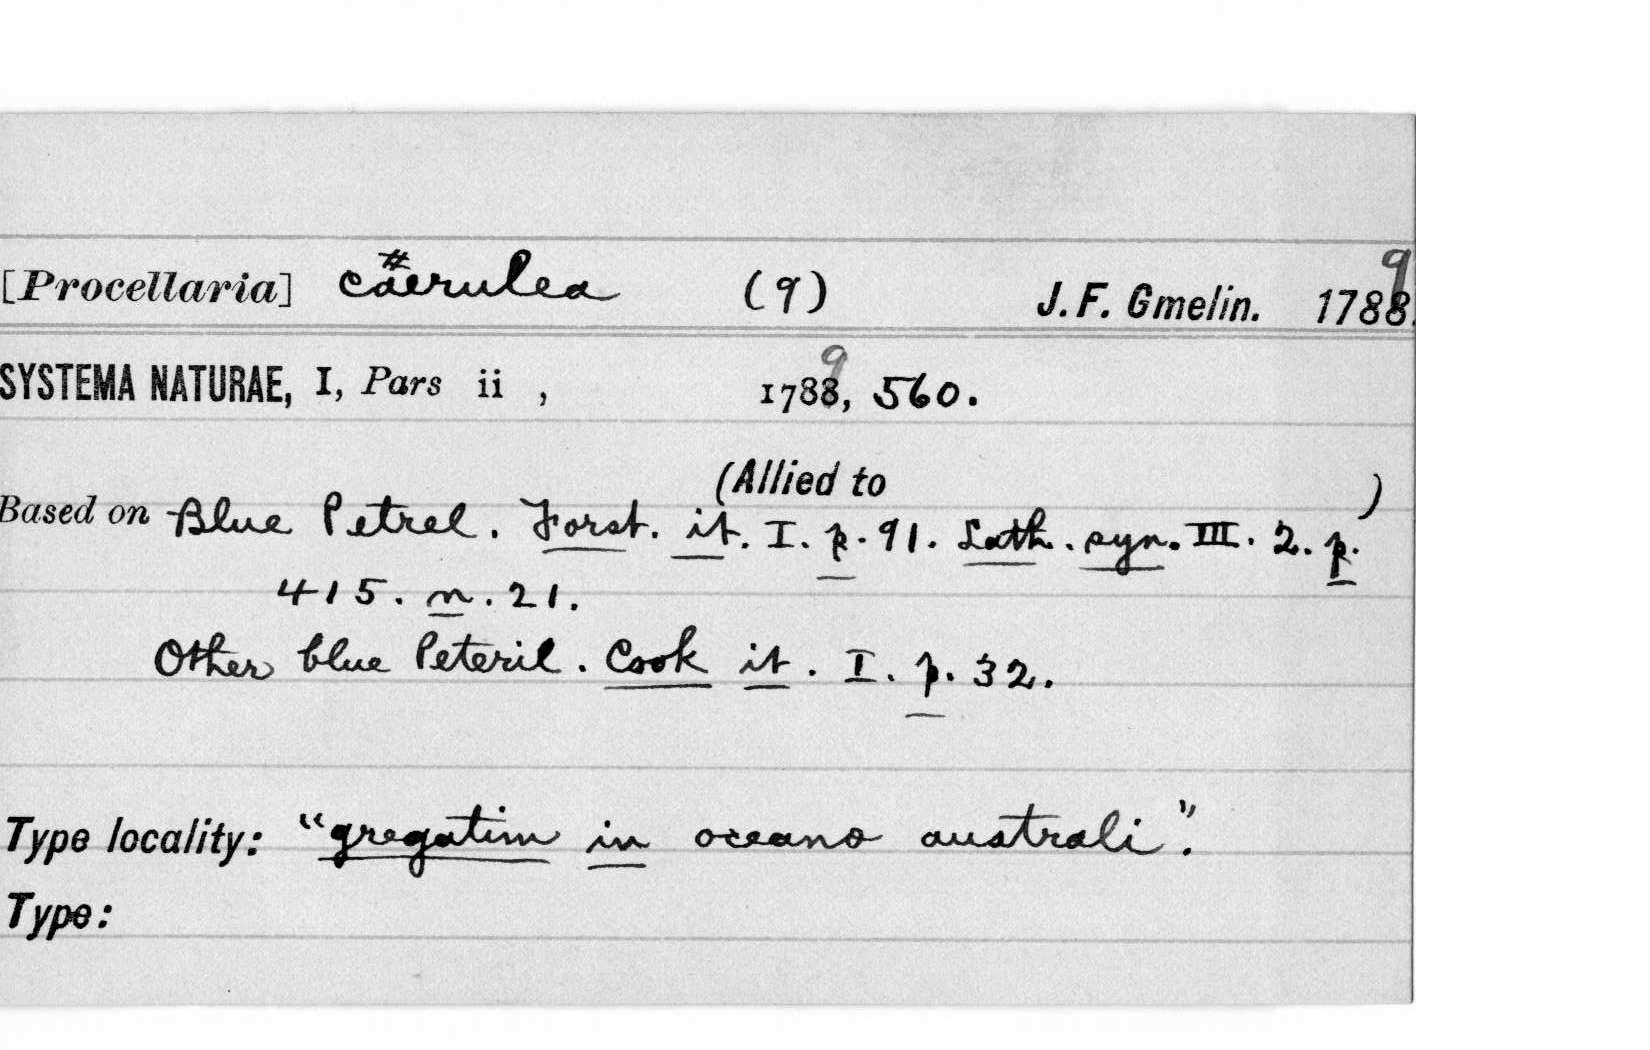 [Procellaria] caerulea (9) J. F. Gmelin. 1789
SYSTEMA NATURAE, I, Pars ii , 1789, 560.
(Allied to )
Based on Blue Petrel. Forst. it. I. p. 91. Lath. syn. III. 2. p.
415. n. 21.
Other blue Peteril. Cook it. I. p. 32.
Type locality: "gregatim in oceano australi".
Type: